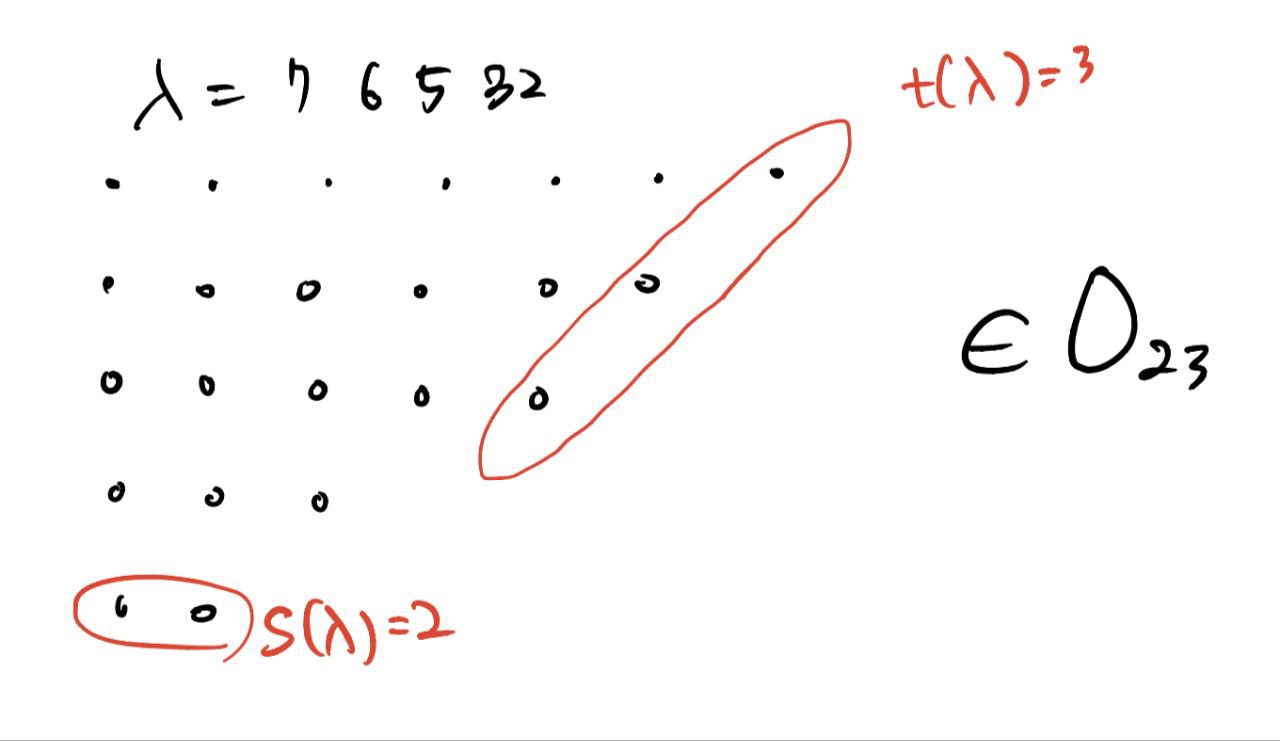 λ = 7 6 5 3 2
t(λ) = 3
∈ D₂₃
S(λ) = 2